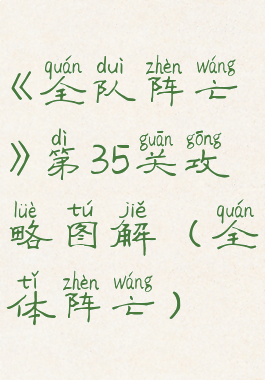 quán duì zhèn wáng
《全队阵亡
dì guān gōng
》第35关攻
lüè tú jiě quán
略图解（全
tǐ zhèn wáng
体阵亡）